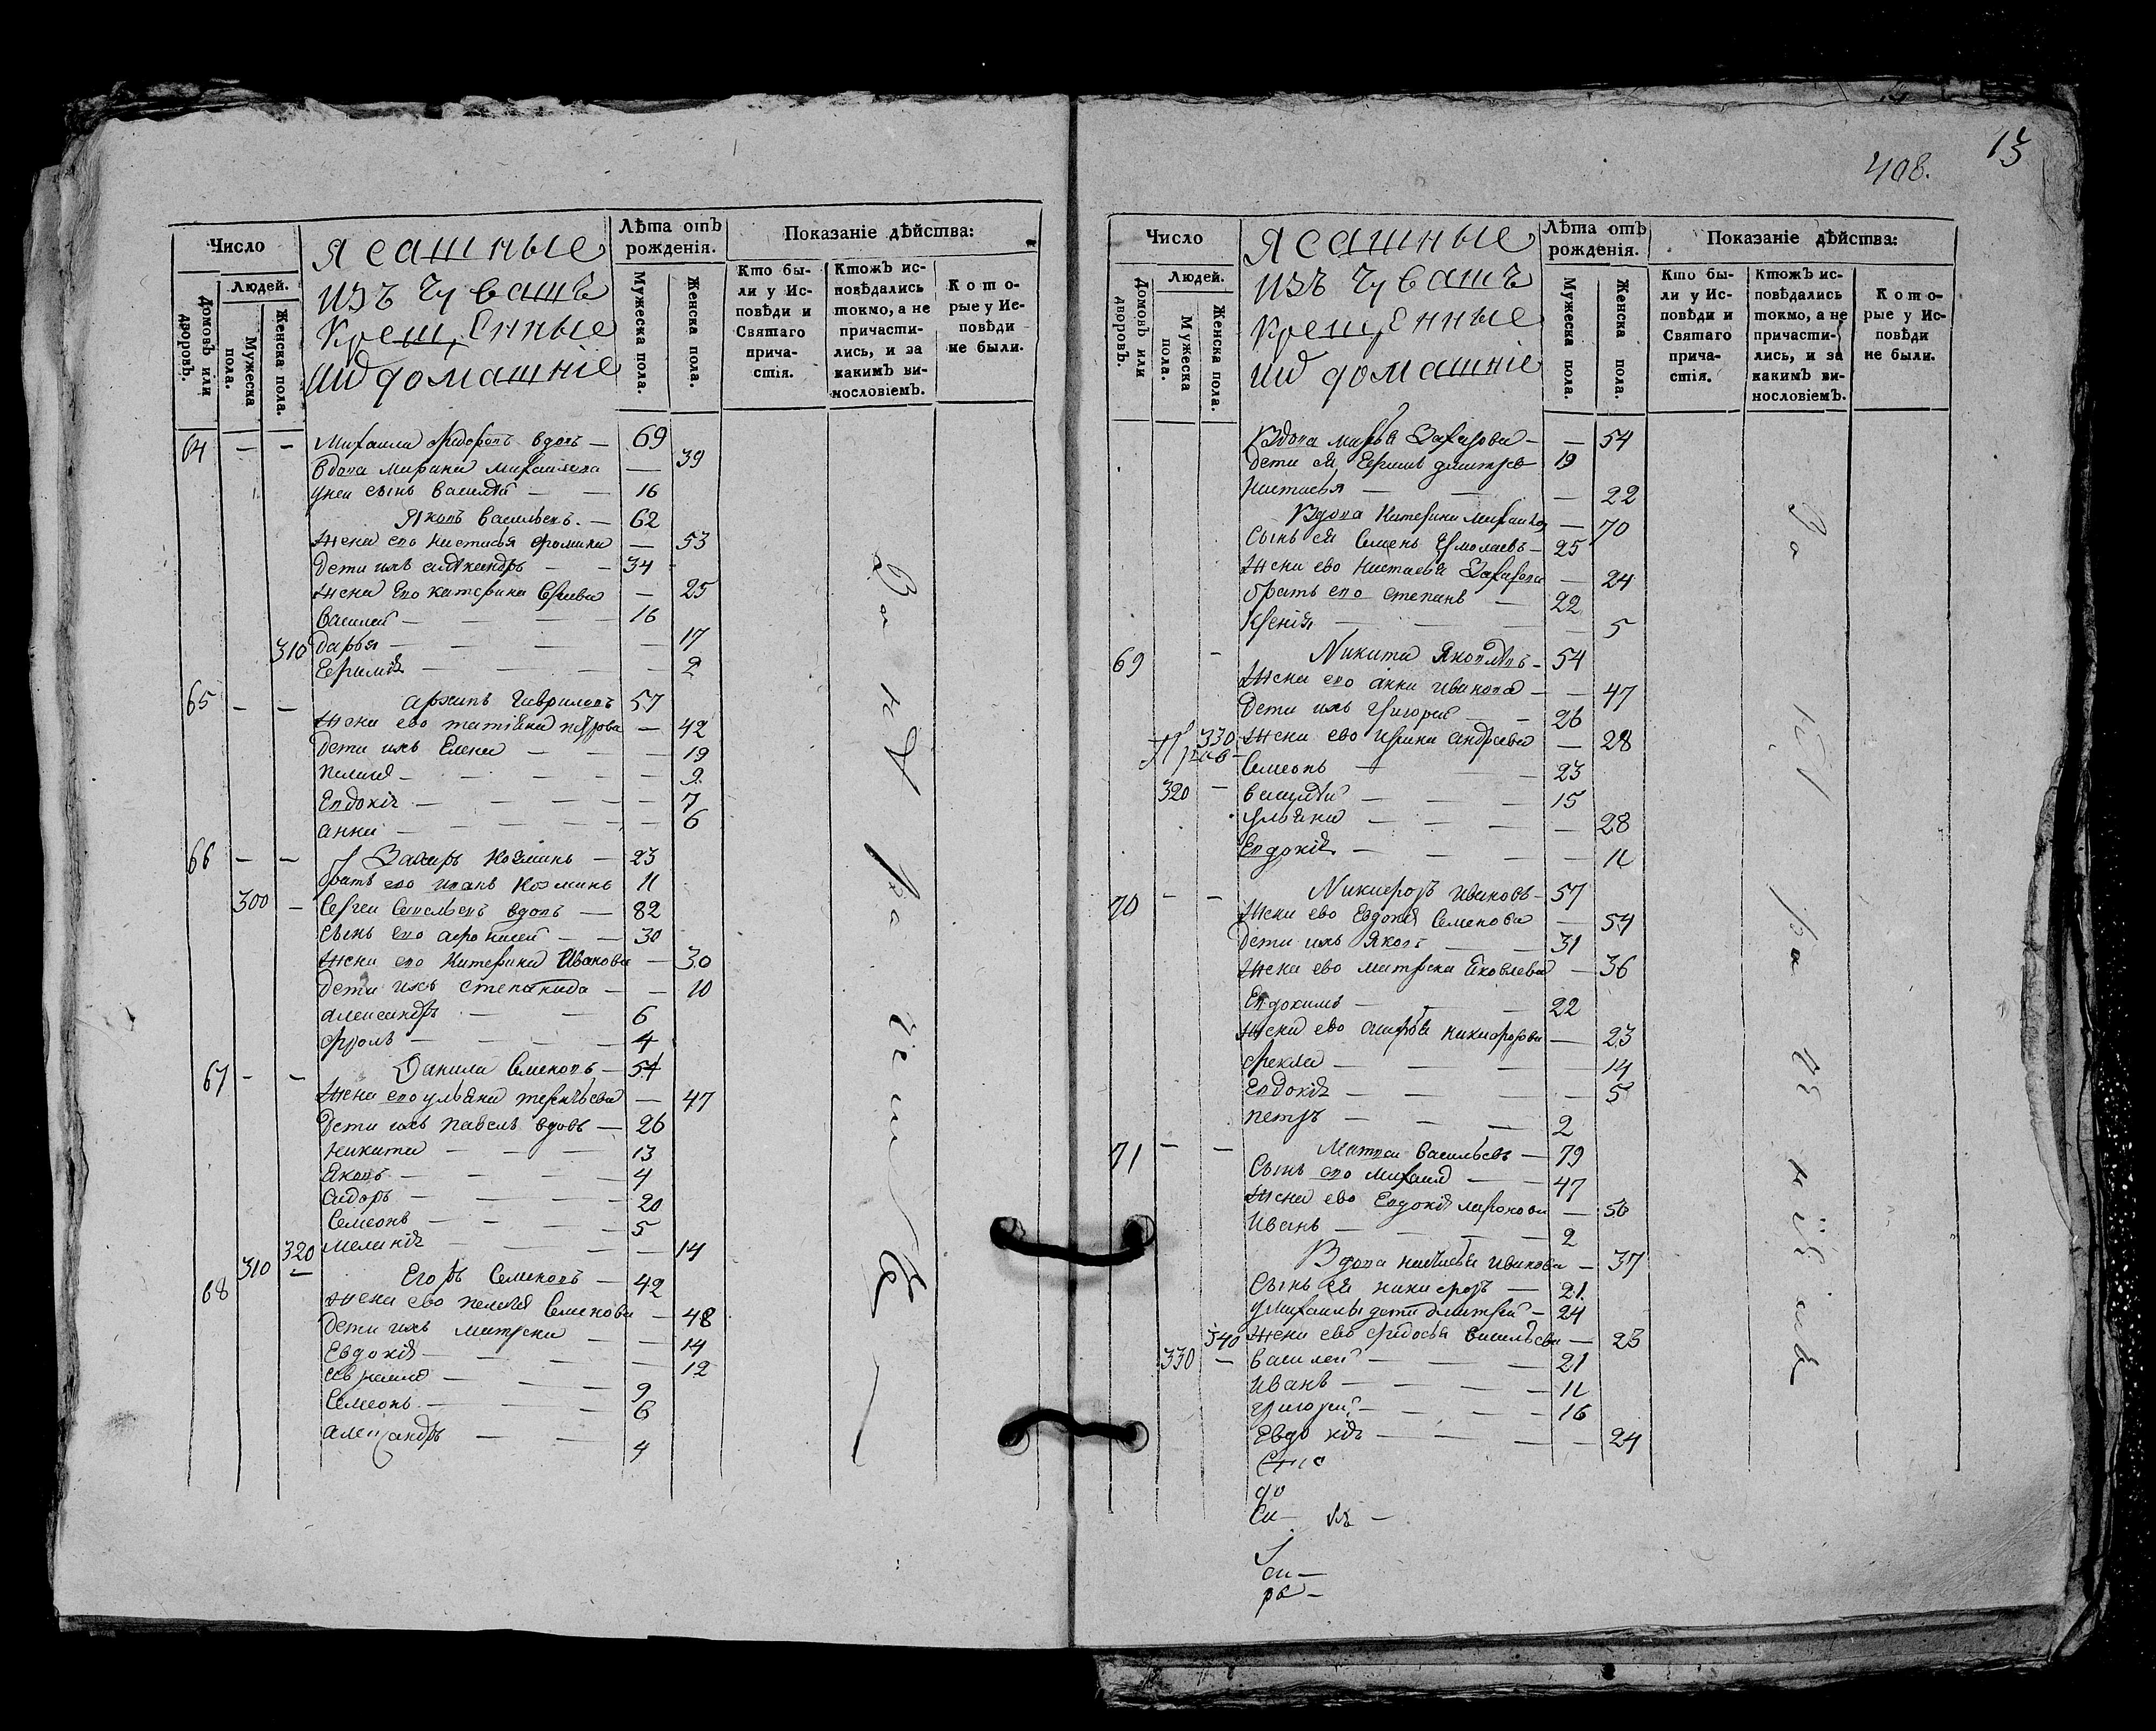 13
408.
Число
Людей.
Домовъ или дворовъ.
Мужеска пола.
Женска пола.
Ясашные
изъ Чувашъ
крещенные
ии домашніе
Лѣта отъ рожденія.
Мужеска пола.
Женска пола.
Показаніе дѣйства:
Кто бы-
ли у Ис-
повѣди и
Святаго
прича-
стія.
Ктожъ ис-
повѣдались
токмо, а не
причасти-
лись, и за
какимъ ви-
нословіемъ.
Кото-
рые у Ис-
повѣди
не были.
64 — — Михаила Федоровъ вдовъ — 69
вдова Марина Михаилова — 39
у нея сынъ Василей — — 16
Яковъ Васильевъ — 62
жена ево Настасья Фомина — 53
дети ихъ Александръ — — 34
жена ево Катерина — 25
Василей — — — — 16
310 Дарья — — — — 17
— — — — 2
65 — — Архипъ Гавриловъ 57
жена ево Татіяна Петрова — 42
дети ихъ Елена — — — 19
Пелагея — — — — 9
Евдокія — — — — 7
Анна — — — — 6
66 — — Захаръ Козминъ — 23
братъ ево Иванъ Козминъ 11
300 — Сергей Савельевъ вдовъ — 82
сынъ ево Афонасей — — 30
жена ево Катерина Иванова — 30
дети ихъ Степанида — — 10
Александръ — — 6
Фролъ — — — 4
67 — — Данила Семеновъ — 54
жена ево Ульяна Терентьева — 47
дети ихъ Павелъ вдовъ — 26
Никита — — — 13
Яковъ — — — — 4
Сидоръ — — — 20
Семеонъ — — — 5
320 Меланія — — — — 14
68 310 — Егоръ Семеновъ — 42
жена ево Пелагея Семенова — 48
дети ихъ Матрена — — 14
Евдокія — — — — 12
— — — 9
Семеонъ — — — 6
Александръ — — 4
Число
Людей.
Домовъ или дворовъ.
Мужеска пола.
Женска пола.
Ясашные
изъ Чувашъ
крещенные
ии домашніе
Лѣта отъ рожденія.
Мужеска пола.
Женска пола.
Показаніе дѣйства:
Кто бы-
ли у Ис-
повѣди и
Святаго
прича-
стія.
Ктожъ ис-
повѣдались
токмо, а не
причасти-
лись, и за
какимъ ви-
нословіемъ.
Кото-
рые у Ис-
повѣди
не были.
Вдова Марья Захарова — — 54
дети ея Дмитрев 19
Настасья — — — 22
Вдова Катерина — 70
сынъ ея Семенъ Ермолаевъ — 25
жена ево Настасья Захарова — 24
братъ ево Степанъ — 22
Ксенія — — — 5
69 — Никита Яковлевъ — 54
жена ево Анна Иванова — — 47
дети ихъ Григорей — — 26
330 жена ево Ирина Андреева — 28
Семеонъ — — — 23
320 — Василей — — — 15
Ульяна — — — — 28
Евдокія — — — — 11
70 — — Никифоръ Ивановъ — 57
жена ево Евдокія Семенова — 54
дети ихъ Яковъ — — 31
жена ево Матрена Яковлева — 36
Евдокимъ — — — 22
жена ево Марфа Никифорова — 23
Фекла — — — — 14
Евдокія — — — — 5
Петръ — — — 2
71 — — Матвей Васильевъ — 79
сынъ ево Михаила — — 47
жена ево Евдокія — 50
Иванъ — — — 2
Вдова Настасья Иванова — 37
сынъ ея Никифоръ — 21
у Михаилы дети Дмитрей — 24
340 жена ево Федосья Васильева — 23
330 — Василей — — — 21
Иванъ — — — — 11
Григорей — — — — 16
Евдокія — — — — 24